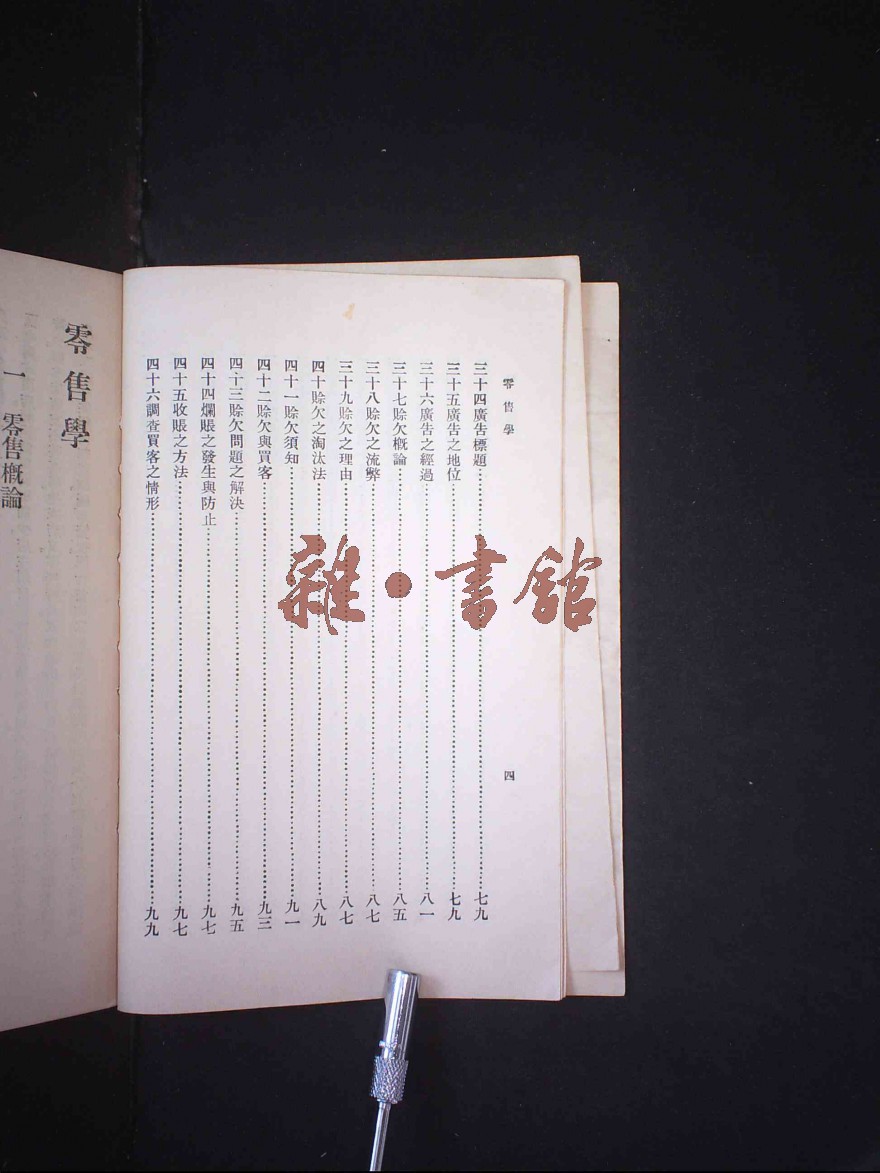 零售學
四
三十四廣告標題……七九
三十五廣告之地位……七九
三十六廣告之經過……八一
三十七賒欠概論……八五
三十八賒欠之流弊……八七
三十九賒欠之理由……八七
四十賒欠之淘汰法……八九
四十一賒欠須知……九一
四十二賒欠與買客……九三
四十三賒欠問題之解決……九五
四十四爛賬之發生與防止……九七
四十五收賬之方法……九七
四十六調查買客之情形……九九
零售學
一 零售概論
雜·書館